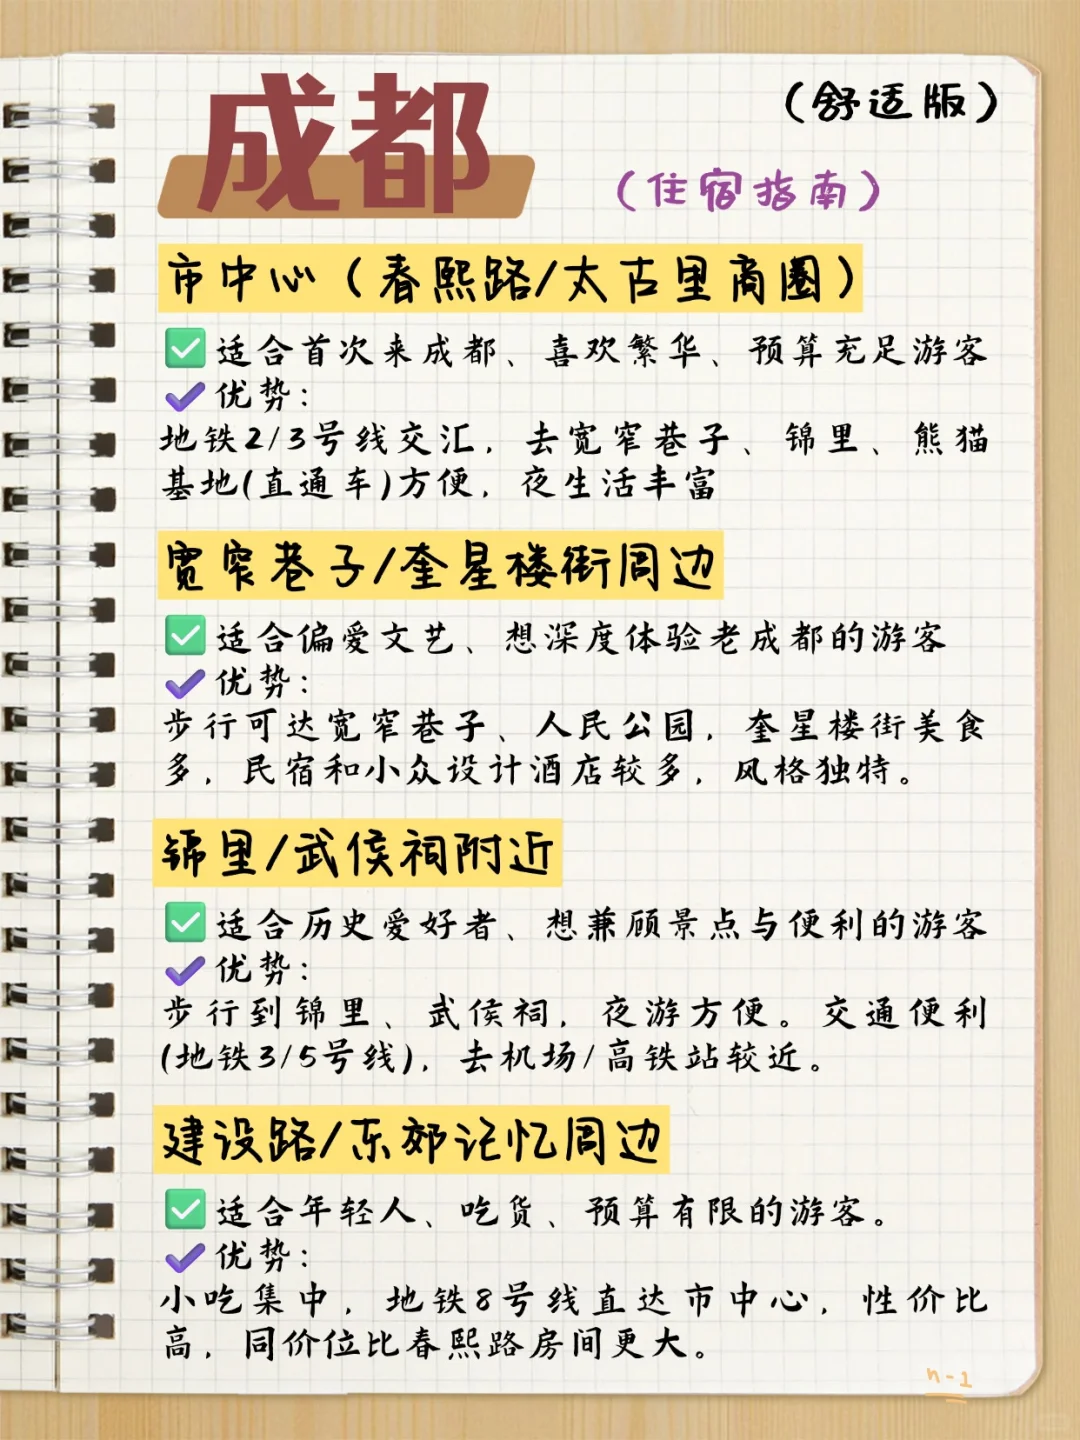 成都
（舒适版）
（住宿指南）
市中心（春熙路/太古里商圈）
✅适合首次来成都、喜欢繁华、预算充足游客
✔优势：
地铁2/3号线交汇，去宽窄巷子、锦里、熊猫
基地(直通车)方便，夜生活丰富
宽窄巷子/奎星楼街周边
✅适合偏爱文艺、想深度体验老成都的游客
✔优势：
步行可达宽窄巷子、人民公园，奎星楼街美食
多，民宿和小众设计酒店较多，风格独特。
锦里/武侯祠附近
✅适合历史爱好者、想兼顾景点与便利的游客
✔优势：
步行到锦里、武侯祠，夜游方便。交通便利
(地铁3/5号线)，去机场/高铁站较近。
建设路/东郊记忆周边
✅适合年轻人、吃货、预算有限的游客。
✔优势：
小吃集中，地铁8号线直达市中心，性价比
高，同价位比春熙路房间更大。
n-1